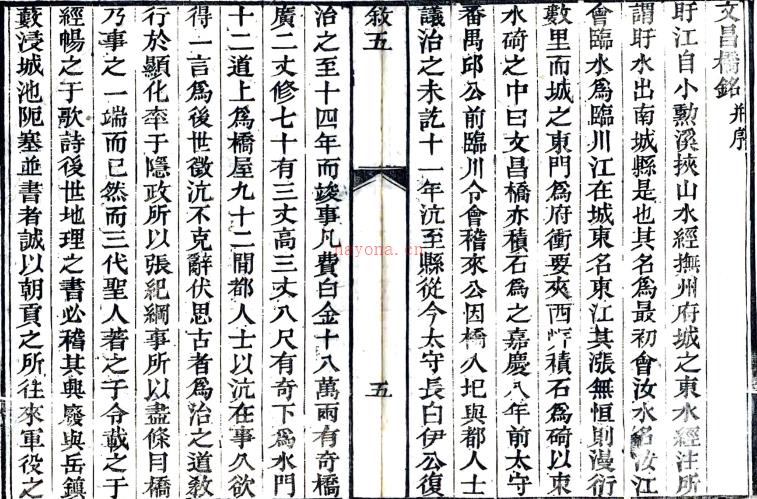 文昌橋銘并序
盱江自小勳溪挾山水經撫州府城之東水經注所
謂盱水出南城縣是也其名爲最初會汝水名汝江
會臨水爲臨川江在城東名東江其漲無恒則漫衍
數里而城之東門爲府衝要夾西岸積石爲碕以束
水碕之中曰文昌橋亦積石爲之嘉慶八年前太守
番禺邱公前臨川令會稽來公因橋久圮與都人士
議治之未訖十一年沆至縣從今太守長白伊公復
敘五
五
治之至十四年而竣事凡費白金十八萬兩有奇橋
廣二丈修七十有三丈高三丈八尺有奇下爲水門
十二道上爲橋屋九十二閒都人士以沆在事久欲
得一言爲後世徵沆不克辭伏思古者爲治之道敎
行於顯化率于隱政所以張紀綱事所以盡條目橋
乃事之一端而已然而三代聖人著之于令載之于
經暢之于歌詩後世地理之書必稽其興廢與岳鎮
藪浸城池阨塞並書者誠以朝貢之所往來軍役之
nayona.cn